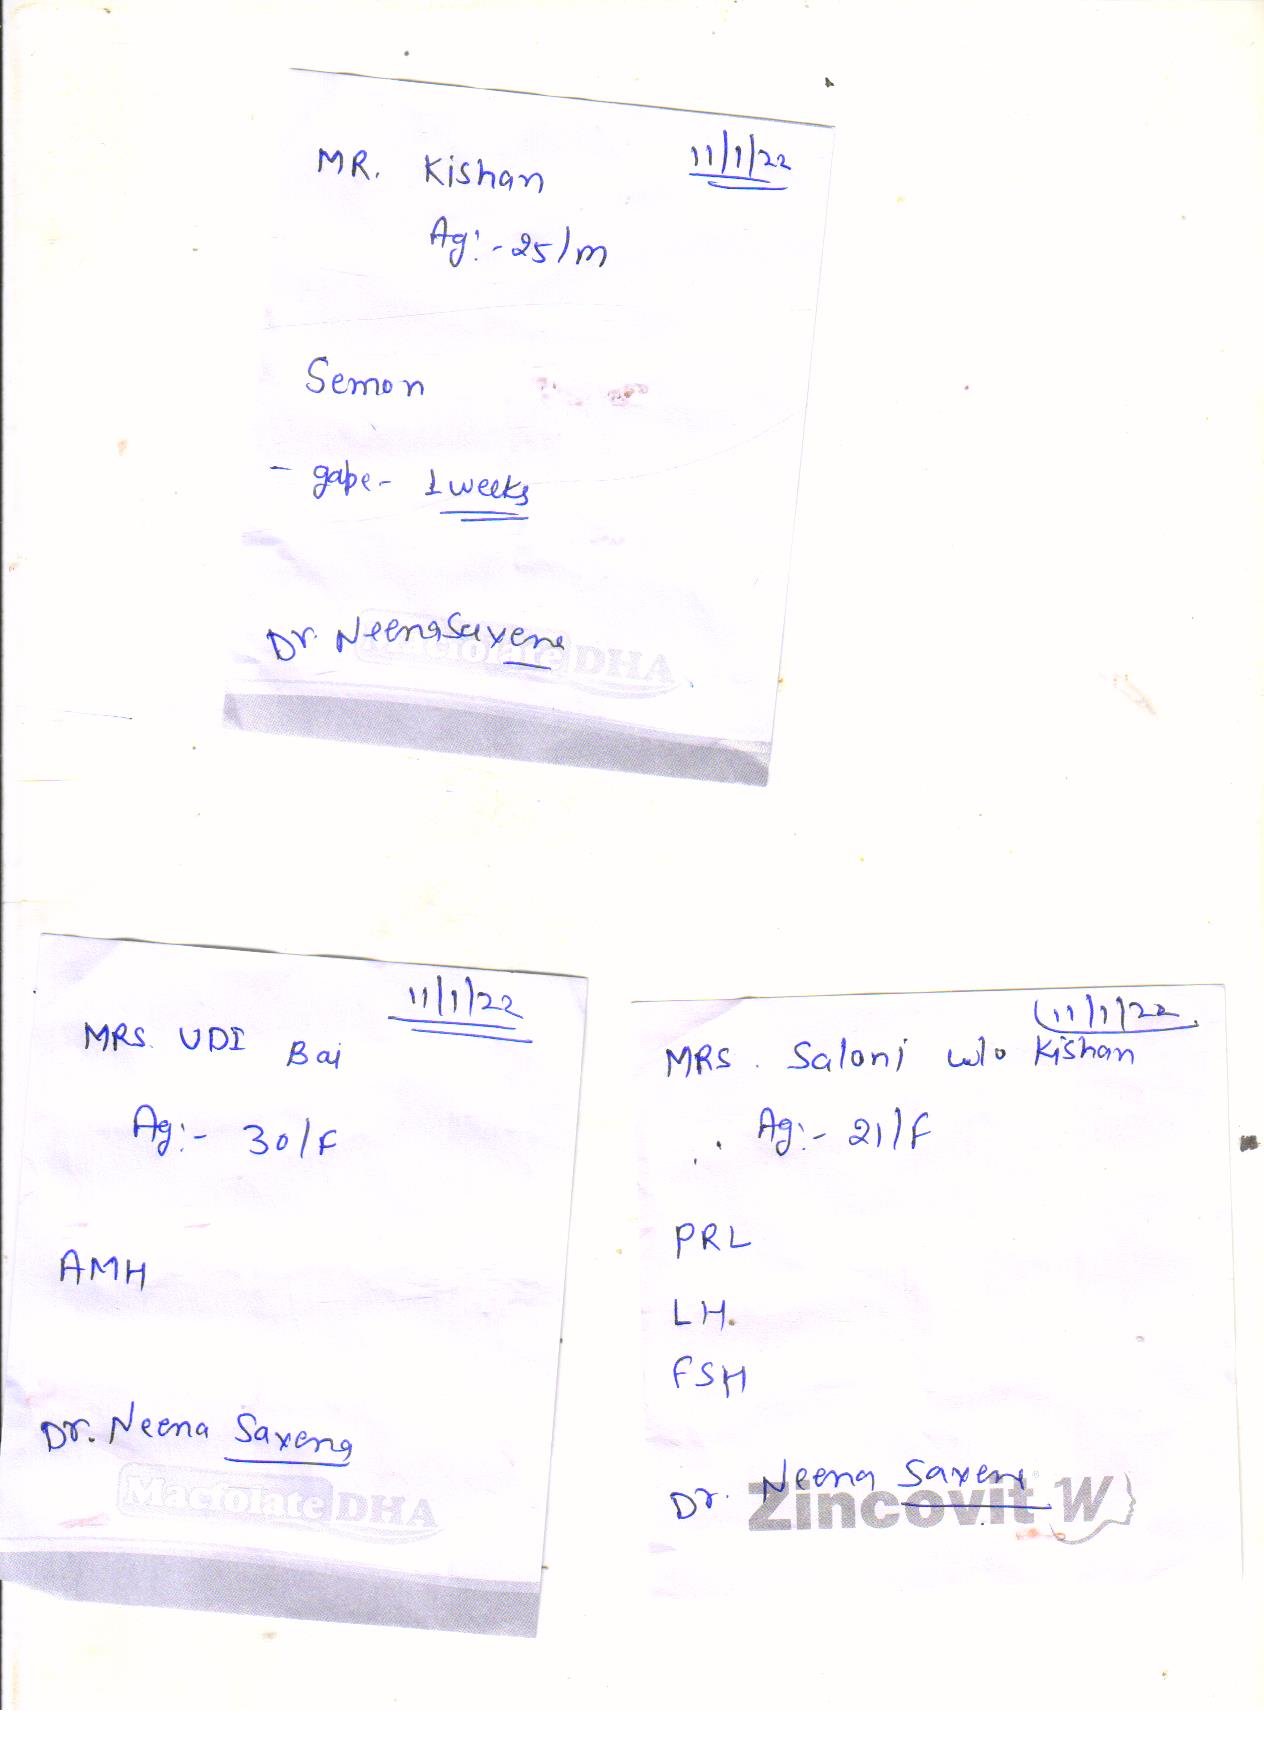 11/1/22
MR. Kishan
Ag:- 25/m
Semon
- gape - 1 weeks
Dr. Neena Saxena
Macfolate DHA
11/1/22
MRS. UDI Bai
Ag:- 30/F
AMH
Dr. Neena Saxena
Macfolate DHA
11/1/22
MRS. Saloni w/o Kishan
Ag:- 21/F
PRL
LH.
FSH
Dr. Neena Saxena
Zincovit W